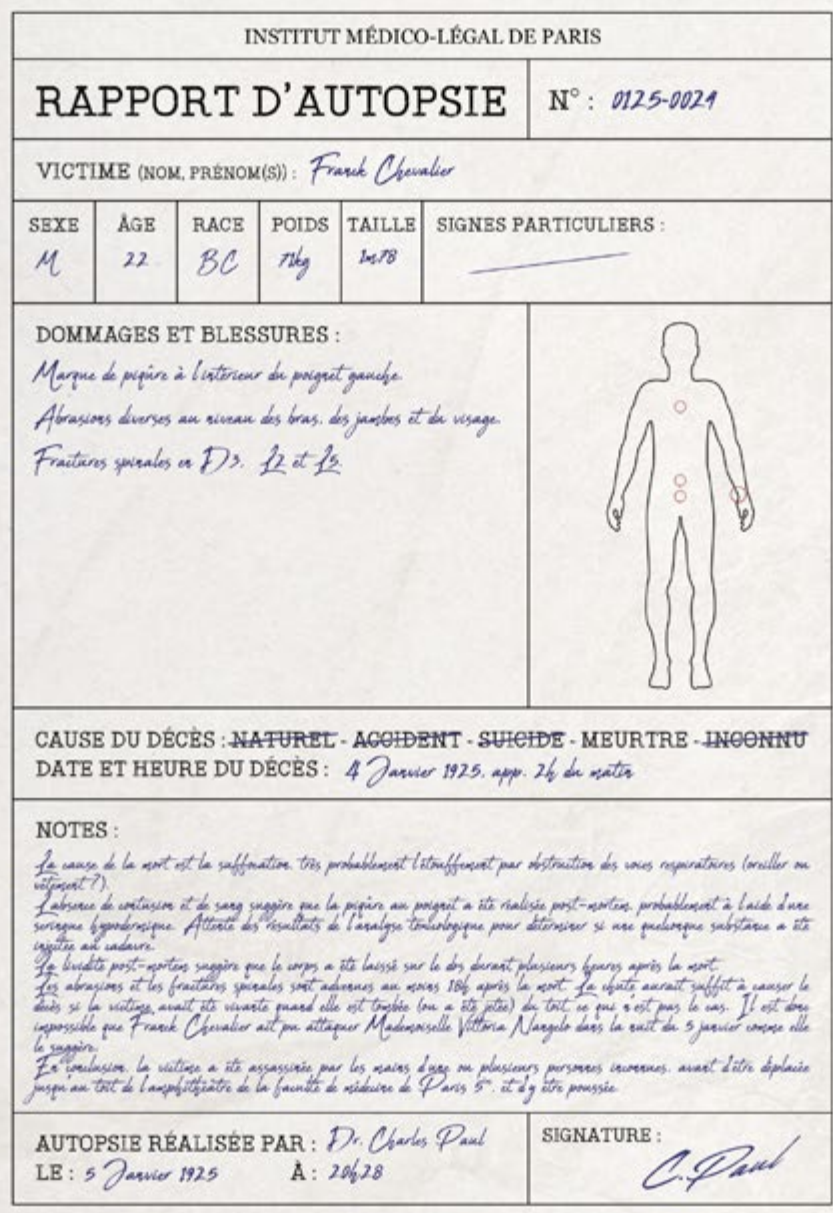 INSTITUT MÉDICO-LÉGAL DE PARIS
RAPPORT D'AUTOPSIE
N° : 0125-0029
VICTIME (NOM, PRÉNOM(S)) : Franck Chevalier
SEXE ÂGE RACE POIDS TAILLE SIGNES PARTICULIERS :
M 22 BC kg 1m78
DOMMAGES ET BLESSURES :
Marque de piqûre à l'intérieur du poignet gauche.
Abrasions diverses au niveau des bras, des jambes et du visage.
Fractures spinales en D3, L2 et L5.
CAUSE DU DÉCÈS : NATUREL - ACCIDENT - SUICIDE - MEURTRE - INCONNU
DATE ET HEURE DU DÉCÈS : 4 Janvier 1925, app. 2h du matin
NOTES :
La cause de la mort est la suffocation, très probablement l'étouffement par obstruction des voies respiratoires (oreiller ou
vêtement ?).
L'absence de contusion et de sang suggère que la piqûre au poignet a été réalisée post-mortem, probablement à l'aide d'une
seringue hypodermique. Attente des résultats de l'analyse toxicologique pour déterminer si une quelconque substance a été
injectée au cadavre.
La lividité post-mortem suggère que le corps a été laissé sur le dos durant plusieurs heures après la mort.
Les abrasions et les fractures spinales sont advenues au moins 18h après la mort. La chute aurait suffit à causer le
décès si la victime avait été vivante quand elle est tombée (ou a été jetée) du toit, ce qui n'est pas le cas. Il est donc
impossible que Franck Chevalier ait pu attaquer Mademoiselle Vittoria Nangelo dans la nuit du 5 janvier comme elle
le suggère.
En conclusion, la victime a été assassinée par les mains d'une ou plusieurs personnes inconnues, avant d'être déplacée
jusqu'au toit de l'amphithéâtre de la faculté de médecine de Paris 5e, et d'y être poussée.
AUTOPSIE RÉALISÉE PAR : Dr. Charles Paul
LE : 5 Janvier 1925 À : 20h28
SIGNATURE :
C. Paul